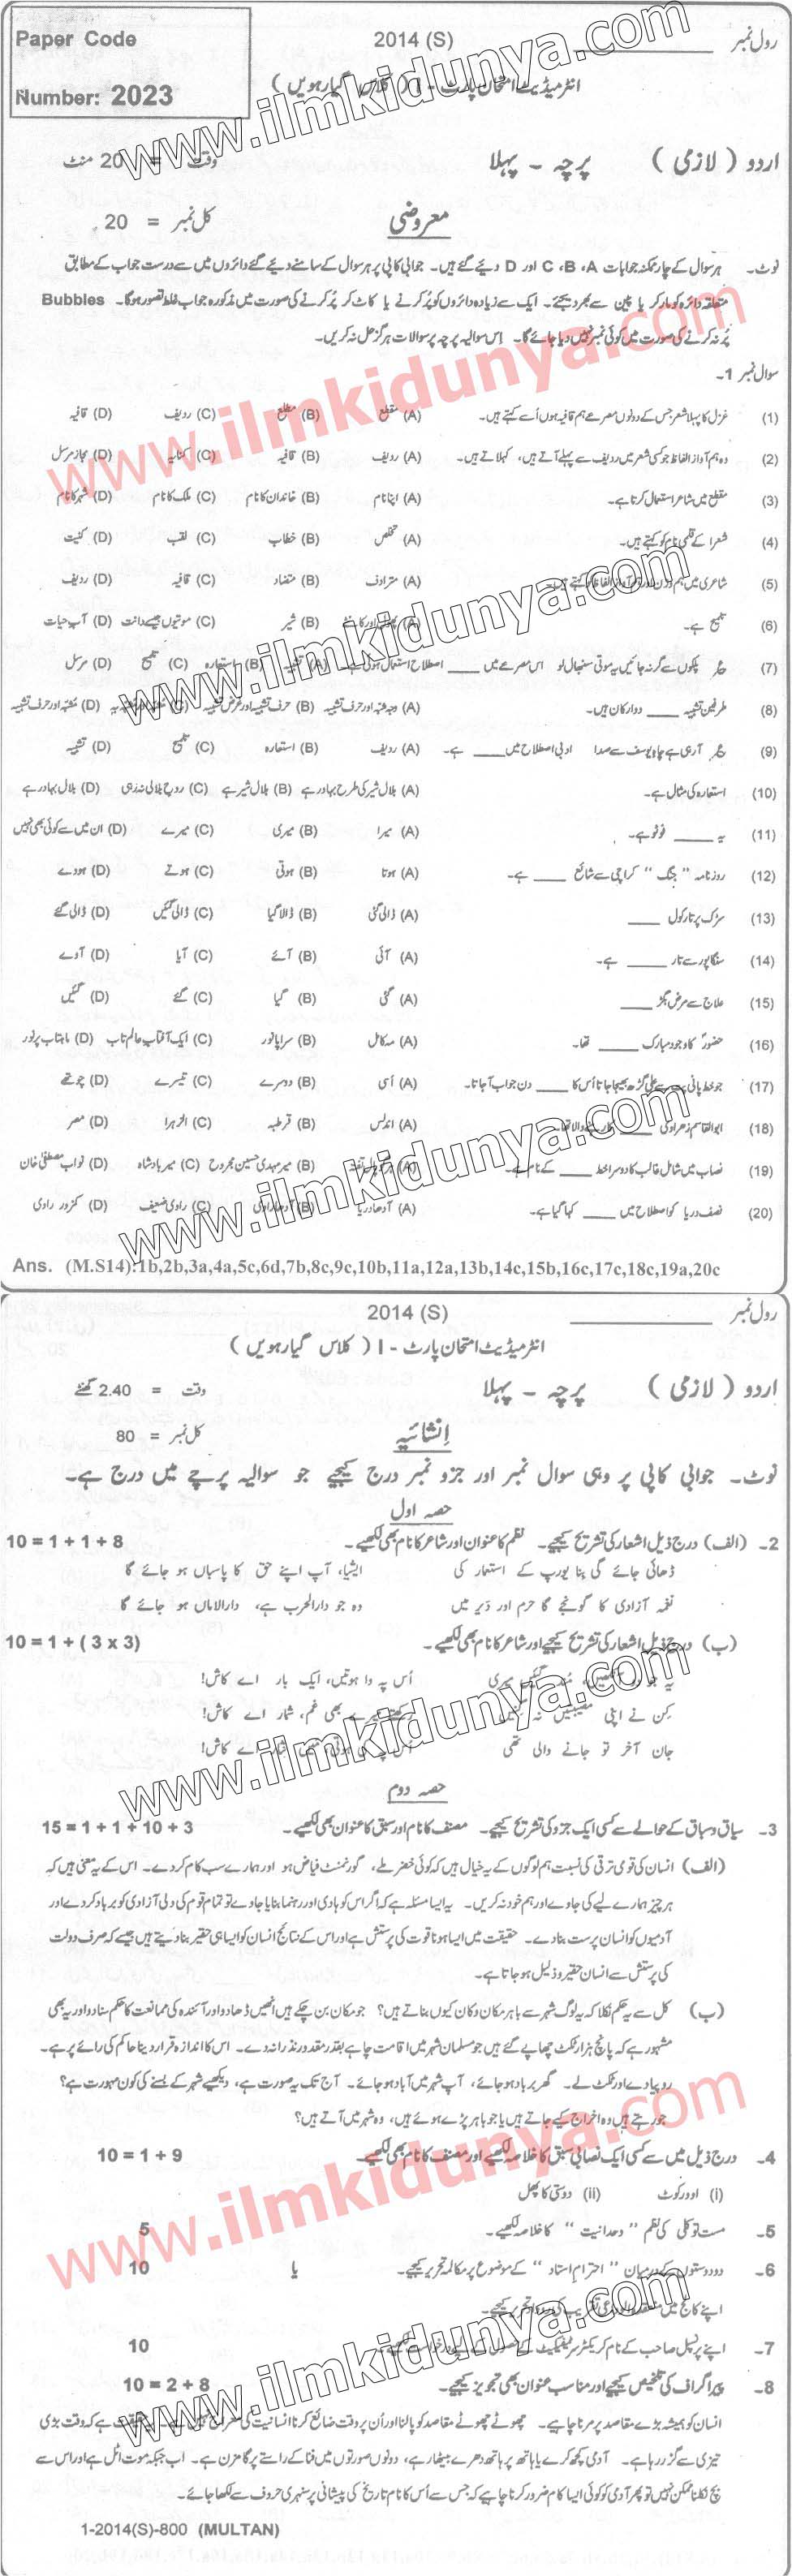 Paper Code
2014 (S)
رول نمبر
Number: 2023
انٹرمیڈیٹ امتحان پارٹ - I ( کلاس گیارہویں )
اردو ( لازمی ) پرچہ - پہلا وقت = 20 منٹ
معروضی کل نمبر = 20
نوٹ۔ ہر سوال کے چار ممکنہ جوابات A، B، C اور D دیے گئے ہیں۔ جوابی کاپی پر ہر سوال کے سامنے دیے گئے دائروں میں سے درست جواب کے مطابق
متعلقہ دائرہ کو مارکر یا پین سے بھر دیجئے۔ ایک سے زیادہ دائروں کو پُر کرنے یا کاٹ کر پُر کرنے کی صورت میں مذکورہ جواب غلط تصور ہوگا۔ Bubbles
پُر نہ کرنے کی صورت میں کوئی نمبر نہیں دیا جائے گا۔ اِس سوالیہ پرچہ پر سوالات ہرگز حل نہ کریں۔
سوال نمبر 1۔
(1) غزل کا پہلا شعر جس کے دونوں مصرعے ہم قافیہ ہوں اُسے کہتے ہیں۔ (A) مقطع (B) مطلع (C) ردیف (D) قافیہ
(2) وہ ہم آواز الفاظ جو کسی شعر میں ردیف سے پہلے آتے ہیں، کہلاتے ہیں۔ (A) ردیف (B) قافیہ (C) کنایہ (D) مجاز مرسل
(3) مقطع میں شاعر استعمال کرتا ہے۔ (A) اپنا نام (B) خاندان کا نام (C) ملک کا نام (D) شہر کا نام
(4) شعرا کے قلمی نام کو کہتے ہیں۔ (A) تخلص (B) خطاب (C) لقب (D) کنیت
(5) شاعری میں ہم وزن اور ہم آواز الفاظ کو کہتے ہیں۔ (A) مترادف (B) متضاد (C) قافیہ (D) ردیف
(6) تلمیح ہے۔ (A) پھول اور کانٹے (B) شیر (C) موتیوں جیسے دانت (D) آبِ حیات
(7) ع پلکوں سے گر نہ جائیں یہ موتی سنبھال لو اس مصرعے میں ____ اصطلاح استعمال ہوئی ہے۔ (A) تشبیہ (B) استعارہ (C) تلمیح (D) مرسل
(8) طرفین تشبیہ ____ دو ارکان ہیں۔ (A) وجہ شبہ اور حرف تشبیہ (B) حرف تشبیہ اور غرض تشبیہ (C) مشبہ اور مشبہ بہ (D) مشبہ اور حرف تشبیہ
(9) ع آ رہی ہے چاہِ یوسف سے صدا ادبی اصطلاح میں ____ ہے۔ (A) ردیف (B) استعارہ (C) تلمیح (D) تشبیہ
(10) استعارہ کی مثال ہے۔ (A) بلال شیر کی طرح بہادر ہے (B) بلال شیر ہے (C) روحِ بلالی نہ رہی (D) بلال بہادر ہے
(11) یہ ____ فوٹو ہے۔ (A) میرا (B) میری (C) میرے (D) ان میں سے کوئی بھی نہیں
(12) روزنامہ "جنگ" کراچی سے شائع ____ ہے۔ (A) ہوتا (B) ہوتی (C) ہوتے (D) ہووے
(13) سڑک پر تارکول ____ (A) ڈالی گئی (B) ڈالا گیا (C) ڈالی گئیں (D) ڈالی گئے
(14) سنگاپور سے تار ____ ہے۔ (A) آئی (B) آئے (C) آیا (D) آوے
(15) علاج سے مرض بگڑ ____ (A) گئی (B) گیا (C) گئے (D) گئیں
(16) حضورؐ کا وجود مبارک ____ تھا۔ (A) مہ کامل (B) سراپا نور (C) ایک آفتاب عالم تاب (D) ماہتاب پر نور
(17) جو خط پانی پت سے علی گڑھ بھیجا جاتا اُس کا ____ دن جواب آ جاتا۔ (A) اُسی (B) دوسرے (C) تیسرے (D) چوتھے
(18) ابوالقاسم زہراوی ____ کا رہنے والا تھا۔ (A) اندلس (B) قرطبہ (C) الزہرا (D) مصر
(19) نصاب میں شامل غالب کا دوسرا خط ____ کے نام ہے۔ (A) ہرگوپال تفتہ (B) میر مہدی حسین مجروح (C) میر بادشاہ (D) نواب مصطفیٰ خان
(20) نصف دریا کو اصطلاح میں ____ کہا گیا ہے۔ (A) آدھا دریا (B) آدھا راوی (C) راوی ضعیف (D) کمزور راوی
Ans. (M.S14):1b,2b,3a,4a,5c,6d,7b,8c,9c,10b,11a,12a,13b,14c,15b,16c,17c,18c,19a,20c
2014 (S) رول نمبر
انٹرمیڈیٹ امتحان پارٹ - I ( کلاس گیارہویں )
اردو ( لازمی ) پرچہ - پہلا وقت = 2.40 گھنٹے
اِنشائیہ کل نمبر = 80
نوٹ۔ جوابی کاپی پر وہی سوال نمبر اور جزو نمبر درج کیجیے جو سوالیہ پرچے میں درج ہے۔
حصہ اول
2۔ (الف) درج ذیل اشعار کی تشریح کیجیے۔ نظم کا عنوان اور شاعر کا نام بھی لکھیے۔ 10 = 1 + 1 + 8
ڈھائی جائے گی بنا یورپ کے استعمار کی ایشیا، آپ اپنے حق کا پاسباں ہو جائے گا
نغمہ آزادی کا گونجے گا حرم اور دَیر میں وہ جو دارالحرب ہے، دارالاماں ہو جائے گا
(ب) درج ذیل اشعار کی تشریح کیجیے اور شاعر کا نام بھی لکھیے۔ 10 = 1 + ( 3 x 3)
یہ جو دو آنکھیں، مُند گئیں میری اُس پہ وا ہوتیں، ایک بار اے کاش!
کِن نے اپنی مصیبتیں نہ گِنیں رکھتے میرے بھی غم، شمار اے کاش!
جان آخر تو جانے والی تھی اُس پہ کی ہوتی میں نثار اے کاش!
حصہ دوم
3۔ سیاق و سباق کے حوالے سے کسی ایک جزو کی تشریح کیجیے۔ مصنف کا نام اور سبق کا عنوان بھی لکھیے۔ 15 = 1 + 1 + 10 + 3
(الف) انسان کی قومی ترقی کی نسبت ہم لوگوں کے یہ خیال ہیں کہ کوئی خضر ملے، گورنمنٹ فیاض ہو اور ہمارے سب کام کر دے۔ اس کے یہ معنی ہیں کہ
ہر چیز ہمارے لیے کی جاوے اور ہم خود نہ کریں۔ یہ ایسا مسئلہ ہے کہ اگر اس کو ہادی اور رہنما بنایا جاوے تو تمام قوم کی دلی آزادی کو برباد کر دے اور
آدمیوں کو انسان پرست بنا دے۔ حقیقت میں ایسا ہونا قوت کی پرستش ہے اور اس کے نتائج انسان کو ایسا ہی حقیر بنا دیتے ہیں جیسے کہ صرف دولت
کی پرستش سے انسان حقیر و ذلیل ہو جاتا ہے۔
(ب) کل سے یہ حکم نکلا کہ یہ لوگ شہر سے باہر مکان و کان کیوں بناتے ہیں؟ جو مکان بن چکے ہیں انھیں ڈھا دو اور آئندہ کی ممانعت کا حکم سنا دو اور یہ بھی
مشہور ہے کہ پانچ ہزار ٹکٹ چھاپے گئے ہیں جو مسلمان شہر میں اقامت چاہے بقدر مقدور نذرانہ دے۔ اس کا اندازہ قرار دینا حاکم کی رائے پر ہے۔
روپیا دے اور ٹکٹ لے۔ گھر برباد ہو جائے، آپ شہر میں آباد ہو جائے۔ آج تک یہ صورت ہے، دیکھیے شہر کے بسنے کی کون مہورت ہے؟
جو رہتے ہیں وہ اخراج کیے جاتے ہیں یا جو باہر پڑے ہوئے ہیں، وہ شہر میں آتے ہیں؟
4۔ درج ذیل میں سے کسی ایک نصابی سبق کا خلاصہ لکھیے اور مصنف کا نام بھی لکھیے۔ 10 = 1 + 9
(i) اوورکوٹ (ii) دوستی کا پھل
5۔ مست توکلی کی نظم "وحدانیت" کا خلاصہ لکھیے۔ 5
6۔ دو دوستوں کے درمیان "احترامِ استاد" کے موضوع پر مکالمہ تحریر کیجیے۔ یا 10
اپنے کالج میں منعقدہ الوداعی تقریب کی روداد تحریر کیجیے۔
7۔ اپنے پرنسپل صاحب کے نام کریکٹر سرٹیفکیٹ کے حصول کے لیے درخواست لکھیے۔ 10
8۔ پیراگراف کی تلخیص کیجیے اور مناسب عنوان بھی تجویز کیجیے۔ 10 = 2 + 8
انسان کو ہمیشہ بڑے مقاصد پر مرنا چاہیے۔ چھوٹے چھوٹے مقاصد کو پالنا اور اُن پر وقت ضائع کرنا انسانیت کی معراج نہیں ہے۔ یہ حقیقت ہے کہ وقت بڑی
تیزی سے گزر رہا ہے۔ آدمی کچھ کرے یا ہاتھ پر ہاتھ دھرے بیٹھا رہے، دونوں صورتوں میں فنا کے راستے پر گامزن ہے۔ اب جبکہ موت اٹل ہے اور اس سے
بچ نکلنا ممکن نہیں تو پھر آدمی کو کوئی ایسا کام ضرور کرنا چاہیے کہ جس سے اُس کا نام تاریخ کی پیشانی پر سنہری حروف سے لکھا جائے۔
1-2014(S)-800 (MULTAN)
www.ilmkidunya.com
www.ilmkidunya.com
www.ilmkidunya.com
www.ilmkidunya.com
www.ilmkidunya.com
www.ilmkidunya.com
www.ilmkidunya.com